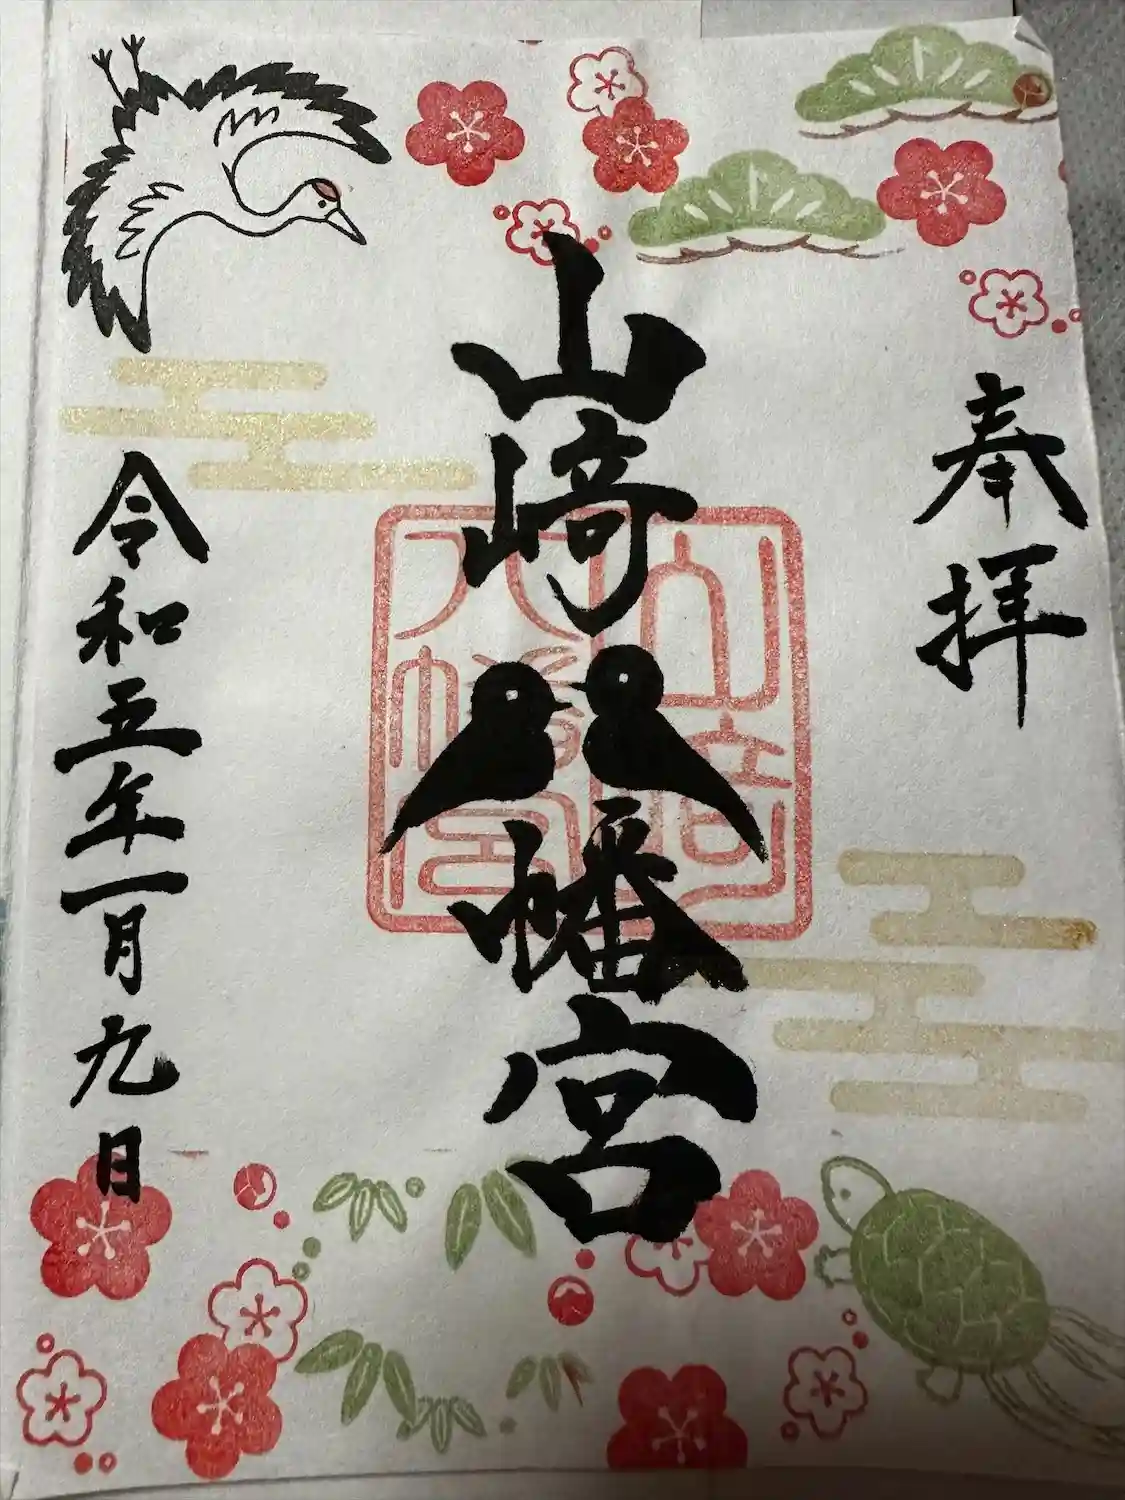 奉拝
山崎八幡宮
令和五年一月九日
山崎八幡宮